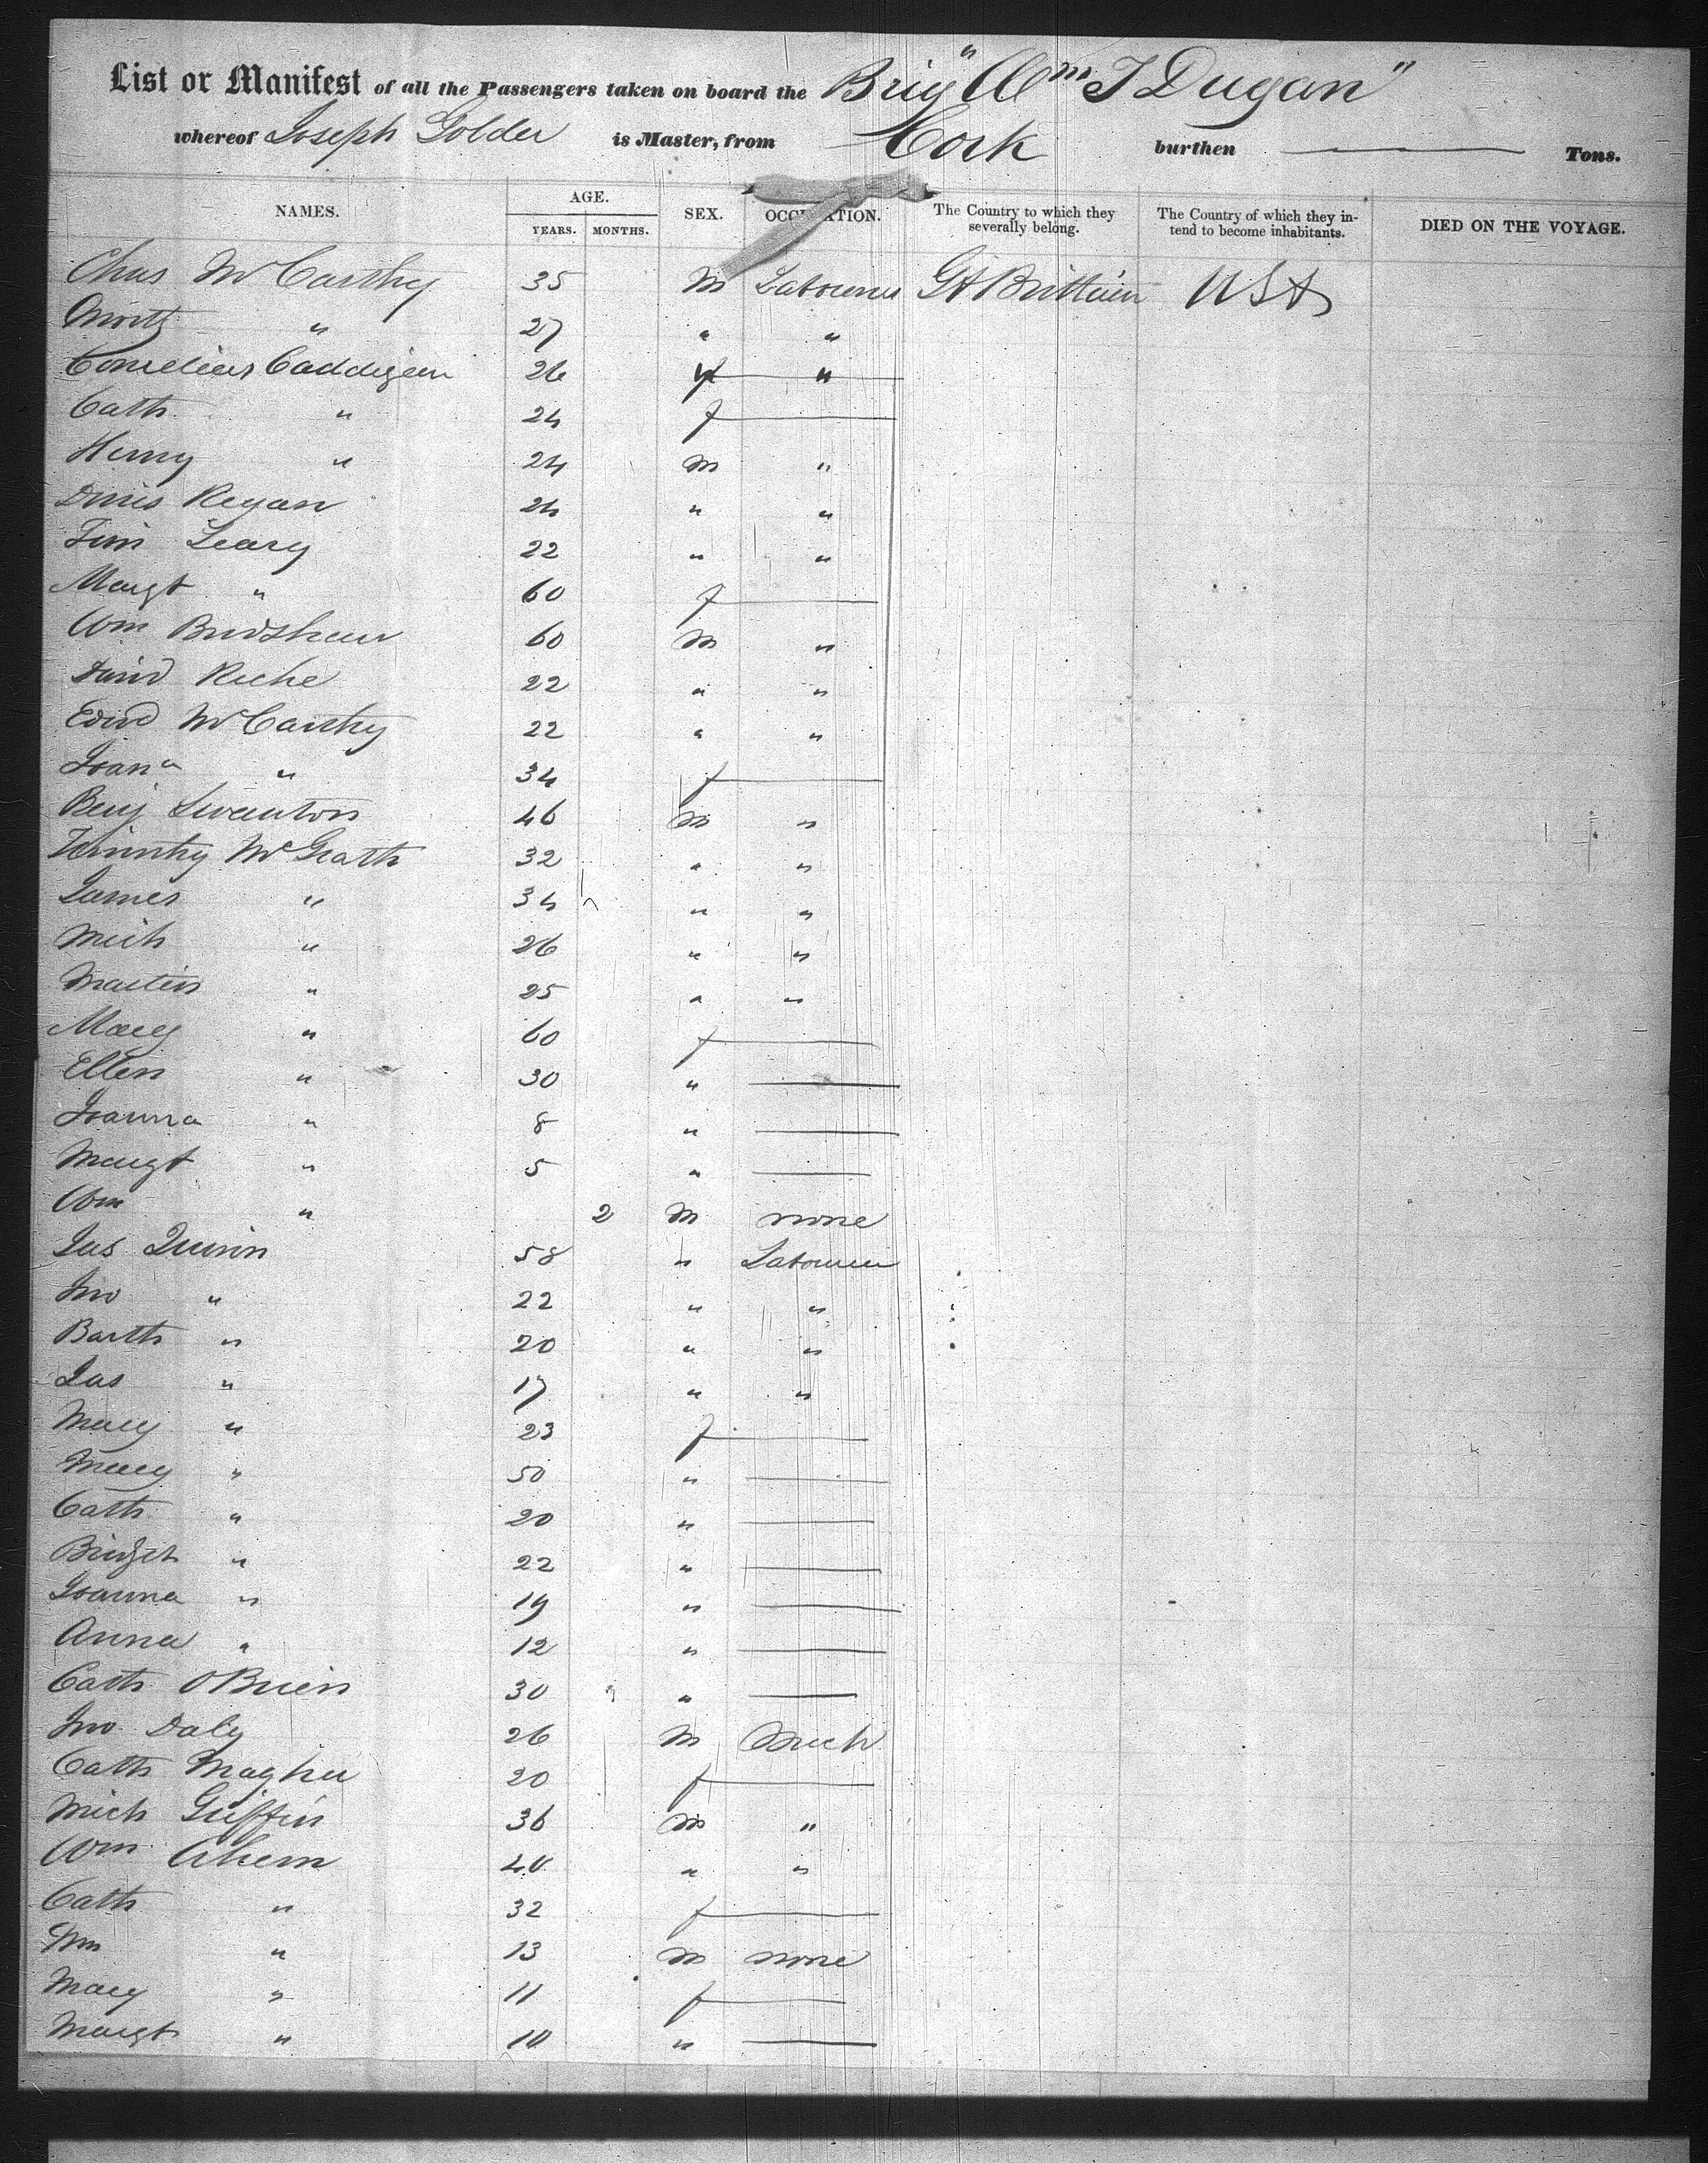 List or Manifest of all the Passengers taken on board the Brig "Wm T Dugan"
whereof Joseph Golder is Master, from Cork burthen —— Tons.
NAMES. AGE. YEARS. MONTHS. SEX. OCCUPATION. The Country to which they severally belong. The Country of which they intend to become inhabitants. DIED ON THE VOYAGE.
Chas McCarthy 35 m Labourer Gt Brittain USA
" 27 " "
Cornelius Caddigan 26 "
Cath " 24 f ——
Henry " 24 m "
Dinis Regan 24 " "
Tim Leary 22 " "
Margt " 60 f ——
Wm Bradshaw 60 m "
David 22 " "
Edwd McCarthy 22 " "
Joana " 34 f ——
Benj Swanton 46 m "
Timothy McGrath 32 " "
James " 34 " "
Mich " 26 " "
Martin " 25 " "
Mary " 60 f ——
Ellen " 30 " ——
Joanna " 8 " ——
Margt " 5 " ——
Wm " 2 m none
Jas Quinn 58 " Labourer
Jno " 22 " "
Barth " 20 " "
Jas " 17 " "
Mary " 23 f ——
Mary " 50 " ——
Cath " 20 " ——
Bridget " 22 " ——
Joanna " 19 " ——
Anna " 12 " ——
Cath OBrien 30 " ——
Jno Daly 26 m Mech
Cath Magher 20 f ——
Mich Griffin 36 m "
Wm Ahern 40 " "
Cath " 32 f ——
Wm " 13 m none
Mary " 11 f ——
Margt " 10 " ——